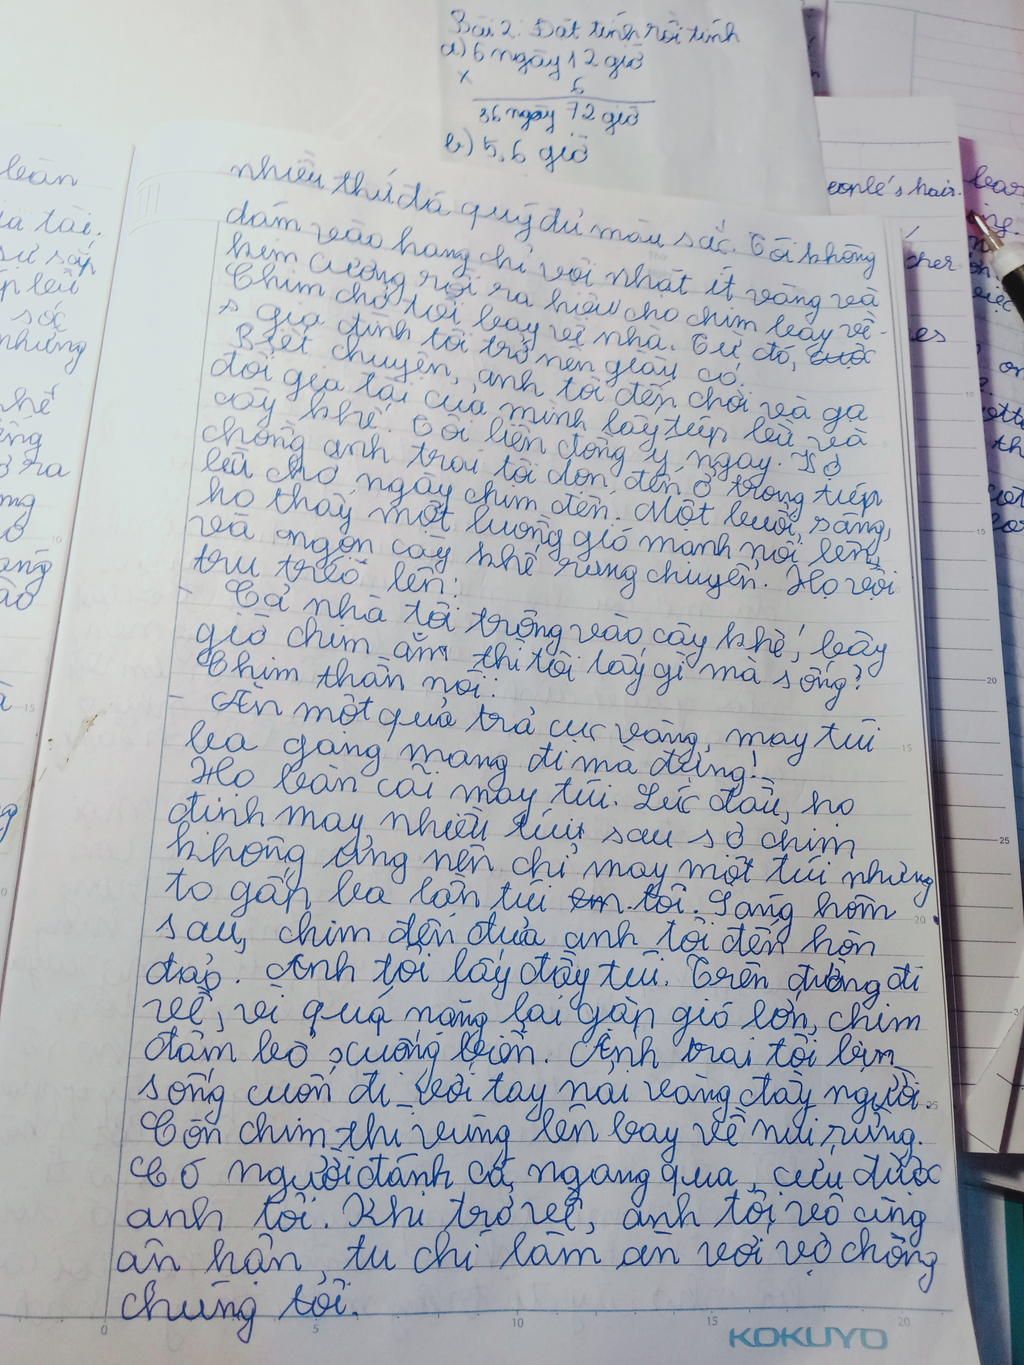 Bài 2: Đặt tính rồi tính
a) 6 ngày 12 giờ
x
6
36 ngày 72 giờ
b) 5,6 giờ
nhiều thứ đá quý đủ màu sắc. Tôi không
dám vào hang chỉ vội nhặt ít vàng và
kim cương rồi ra hiệu cho chim bay về.
Chim chở tôi bay về nhà. Từ đó, cuộc
gia đình tôi trở nên giàu có.
Biết chuyện, anh tôi đến chơi và gạ
đổi gia tài của mình lấy túp lều và
cây khế. Tôi liền đồng ý ngay. Vợ
chồng anh trai tôi dọn đến ở trong túp
lều chờ ngày chim đến. Một buổi sáng,
họ thấy một luồng gió mạnh nổi lên,
và ngọn cây khế rung chuyển. Họ vội
tru tréo lên:
- Cả nhà tôi trông vào cây khế, bây
giờ chim ăn thì tôi lấy gì mà sống?
Chim thần nói:
- Ăn một quả trả cục vàng, may túi
ba gang mang đi mà đựng!
Họ bàn cãi may túi. Lúc đầu, họ
định may nhiều túi, sau sợ chim
không ưng nên chỉ may một túi nhưng
to gấp ba lần túi em tôi. Sáng hôm
sau, chim đến đưa anh tôi đến hòn
đảo. Anh tôi lấy đầy túi. Trên đường đi
về, vì quá nặng lại gặp gió lớn, chim
đâm bổ xuống biển. Anh trai tôi bị
sóng cuốn đi với tay nải vàng đầy người.
Còn chim thì vùng lên bay về núi rừng.
Có người đánh cá ngang qua, cứu được
anh tôi. Khi trở về, anh tôi vô cùng
ân hận, tu chí làm ăn với vợ chồng
chúng tôi.
KOKUYO